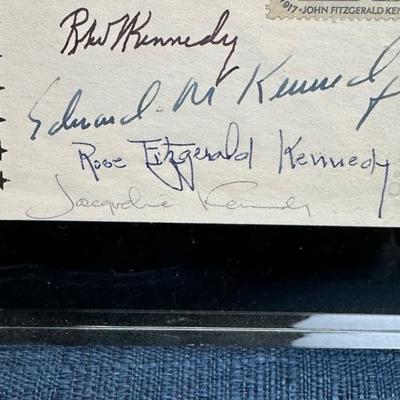 1917 · JOHN FITZGERALD KEN
Robt Kennedy
Edward M Kennedy
Rose Fitzgerald Kennedy
Jacqueline Kennedy